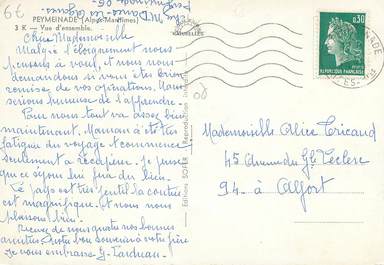 PEYMEINADE (Alpes-Maritimes)
3 K - Vue d'ensemble.
Chère Mademoiselle
Malgré l'éloignement nous
pensons à vous, et nous nous
demandons si vous êtes bien
remise de vos opérations. Nous
serions heureuse de l'apprendre.
Pour nous tout va assez bien
maintenant. Maman a été très
fatiguée du voyage et commence
seulement à récupérer. Je pense
que ce séjour lui fera du bien.
Le pays est très gentil la contrée
est magnifique. Et nous nous
plaisons bien.
Recevez de nous quatre nos bonnes
amitiés, notre bon souvenir à votre frère
Je vous embrasse
Editions SOFER - Reproduction interdite
0,30
REPUBLIQUE FRANÇAISE
POSTES
Mademoiselle Alice Ticaud
45 Avenue du Gl Leclerc
94 - à Alfort